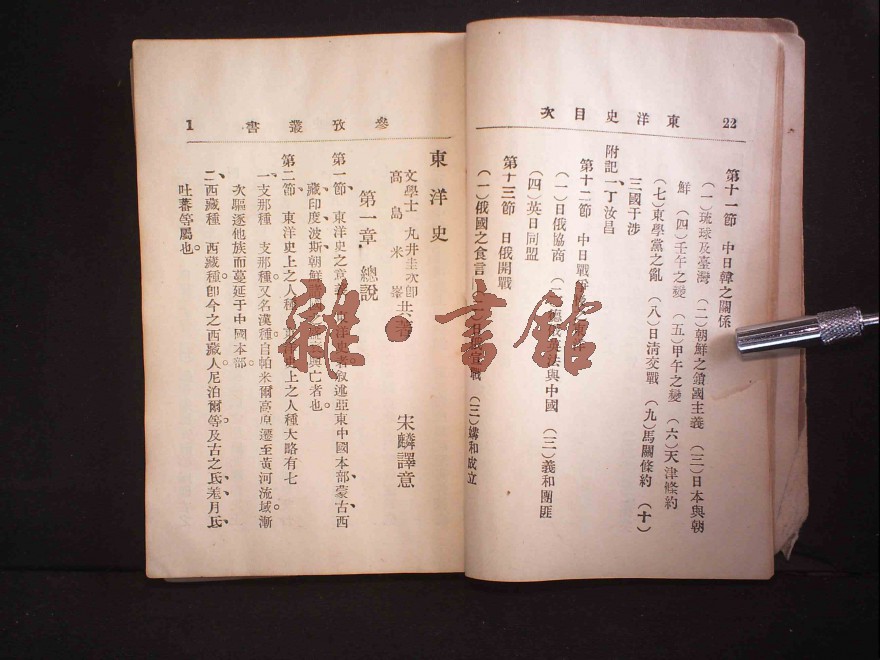 22 東洋史目次
第十一節 中日韓之關係
(一)琉球及臺灣 (二)朝鮮之鎖國主義 (三)日本與朝
鮮 (四)壬午之變 (五)甲午之變 (六)天津條約
(七)東學黨之亂 (八)日淸交戰 (九)馬關條約 (十)
三國干涉
附記 一、丁汝昌
第十二節 中日戰
(一)日俄協商 與中國 (三)義和團匪
(四)英日同盟
第十三節 日俄開戰
(一)俄國之食言 戰 (三)媾和成立
參攷叢書 1
東洋史
文學士 丸井圭次郎
高島米峯 共著
宋麟譯意
第一章 總說
第一節、東洋史之意 東洋史者叙述亞東中國本部、蒙古、西
藏、印度、波斯、朝鮮 興亡者也。
第二節、東洋史上之人種 東洋史上之人種大略有七
一、支那種 支那種又名漢種。自帕米爾高原遷至黃河流域。漸
次驅逐他族而蔓延于中國本部。
二、西藏種 西藏種卽今之西藏人尼泊爾等、及古之氐、羌、月氐、
吐蕃等屬也。
雜·書館